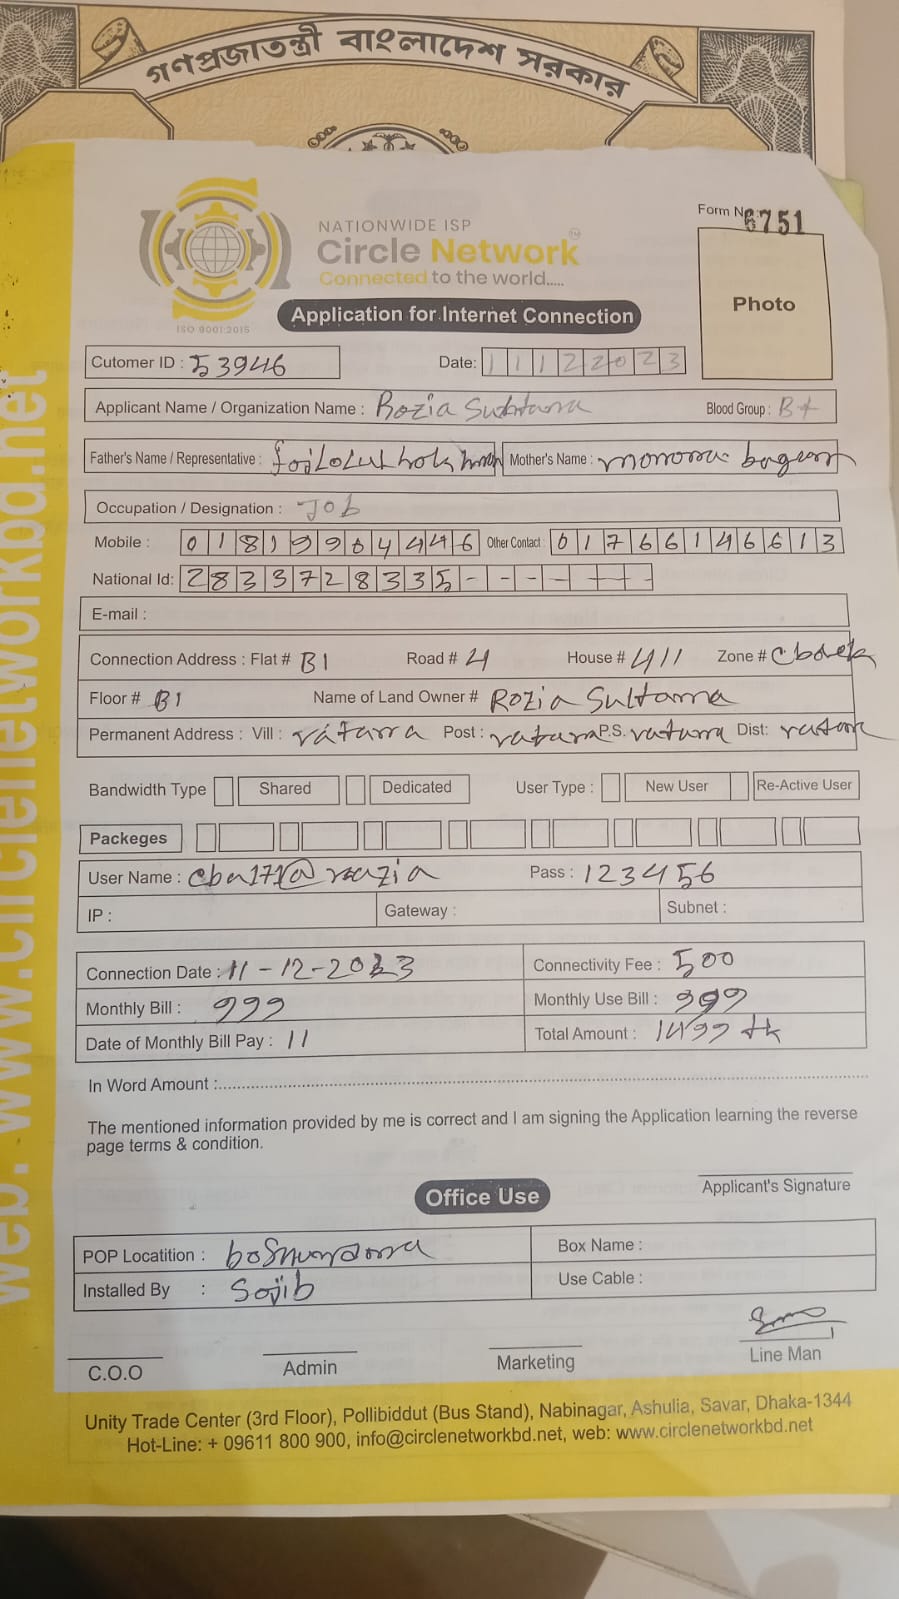 গণপ্রজাতন্ত্রী বাংলাদেশ সরকার
Form No. 6751
NATIONWIDE ISP
Circle Network
Connected to the world.....
ISO 9001:2015
Application for Internet Connection
Photo
Cutomer ID : 53946 Date: 11122023
Applicant Name / Organization Name : Rozia Sultana Blood Group : B+
Father's Name / Representative : Mother's Name :
Occupation / Designation : Job
Mobile : 01819904446 Other Contact : 01766146613
National Id: 2833728335-------
E-mail :
Connection Address : Flat # B1 Road # 4 House # 411 Zone #
Floor # B1 Name of Land Owner # Rozia Sultana
Permanent Address : Vill : vatara Post : vatara P.S. vatara Dist:
Bandwidth Type Shared Dedicated User Type : New User Re-Active User
Packeges
User Name : Pass : 123456
IP : Gateway : Subnet :
Connection Date : 11-12-2023 Connectivity Fee : 500
Monthly Bill : 999 Monthly Use Bill : 999
Date of Monthly Bill Pay : 11 Total Amount : 1499 tk
In Word Amount :
The mentioned information provided by me is correct and I am signing the Application learning the reverse
page terms & condition.
Applicant's Signature
Office Use
POP Locatition : Box Name :
Installed By : Sojib Use Cable :
C.O.O Admin Marketing Line Man
Unity Trade Center (3rd Floor), Pollibiddut (Bus Stand), Nabinagar, Ashulia, Savar, Dhaka-1344
Hot-Line: + 09611 800 900, info@circlenetworkbd.net, web: www.circlenetworkbd.net
web: www.circlenetworkbd.net